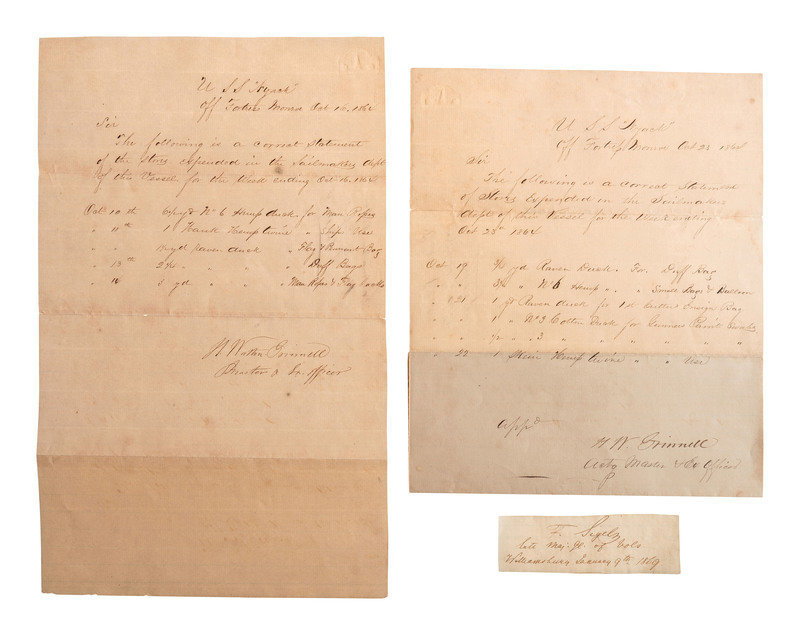 U S S "Nyack"
Off Fortress Monroe Oct 16, 1864
Sir
The following is a correct Statement
of the Stores expended in the Sailmakers Dept
of this Vessel for the Week ending Oct 16. 1864
Oct 10th 6 yds No 6 Hemp duck for Man Ropes
" 11th 1 Hank Hemp twine " Ship Use
yd raven duck " Bag
" 13th " " " Duff Bags
" 16 3 yd " " Man Ropes &
Grinnell
& Ex. Officer
U S S "Nyack"
Off Fortress Monroe Oct 23 1864
Sir
The following is a correct Statement
of Stores Expended in the Sailmakers
Dept of this Vessel for the Week ending
Oct 23d 1864
Oct 19 yd Raven Duck For Duff Bag
" " No 6 Hemp " " Small Bags &
" 21 1 yd Raven duck for 1st Cutter Ensign Bag
" " 1 " No 3 Cotton Duck for
" " 1/2 " 3 " " " " "
" 22 1 Skein Hemp twine " " Use
Appd
H W. Grinnell
Actg Master & Ex Officer
F. Sigel
late Maj. Gl. of Vols
January 9th 1869